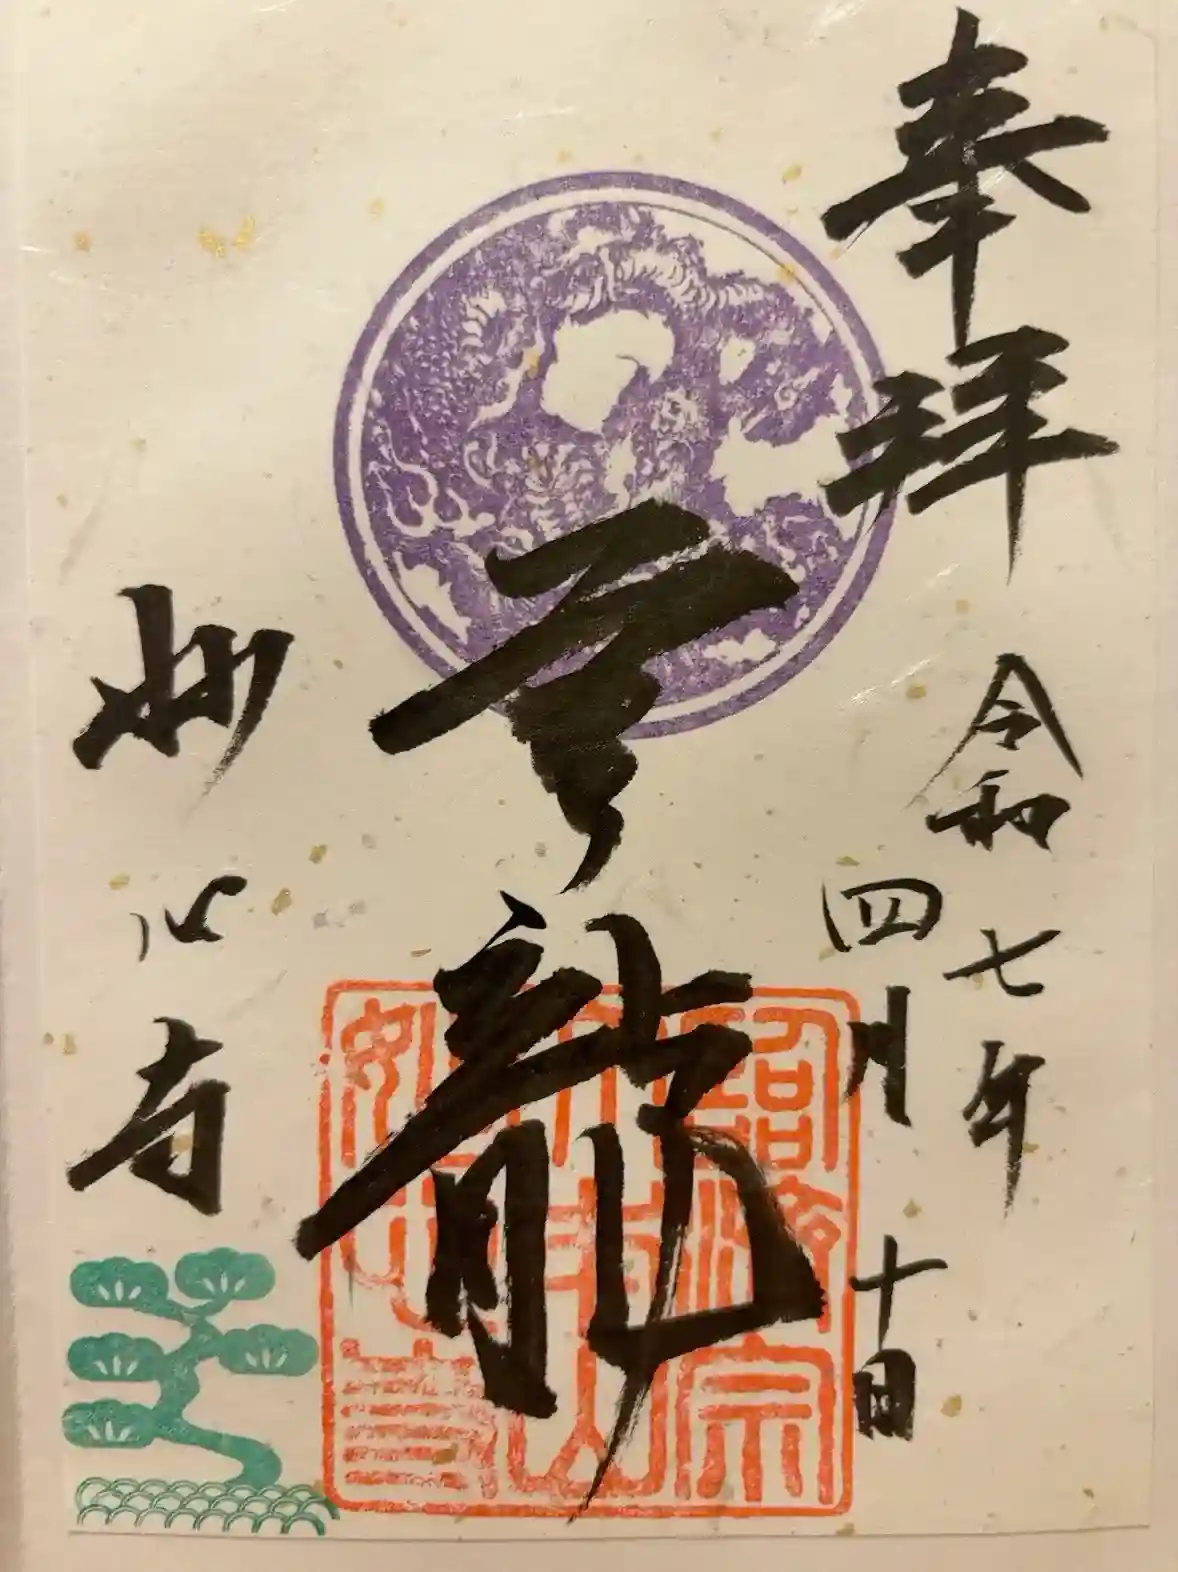 奉拝
令和七年
四月十日
雲龍
臨済宗
大本山
妙心
妙心寺